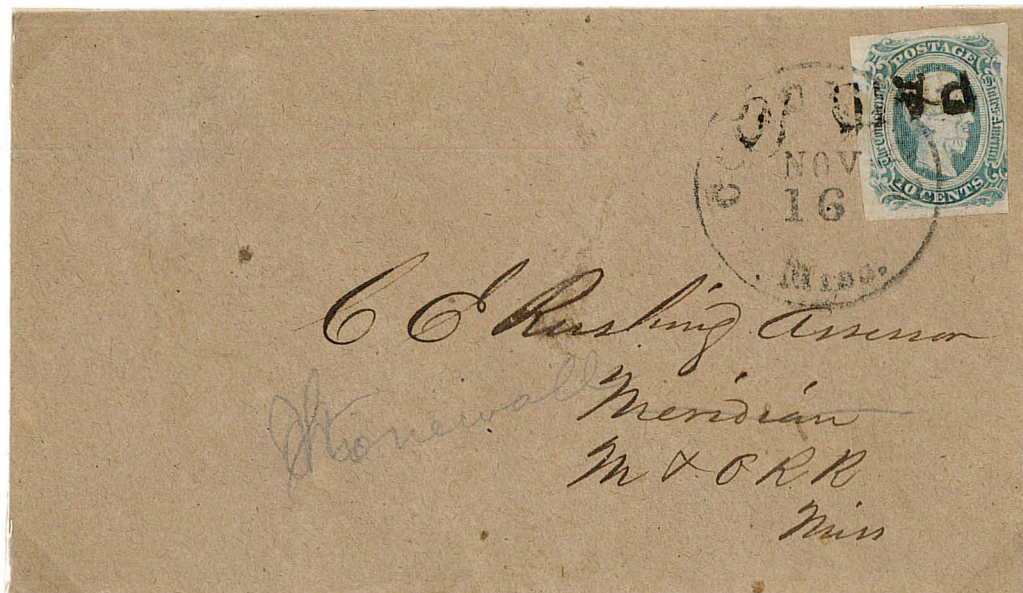 POSTAGE
The Confederate States of America
10 CENTS
NOV
16
Miss.
C E Rushing Assessor
Stonewall
Meridian
M & O R R
Miss